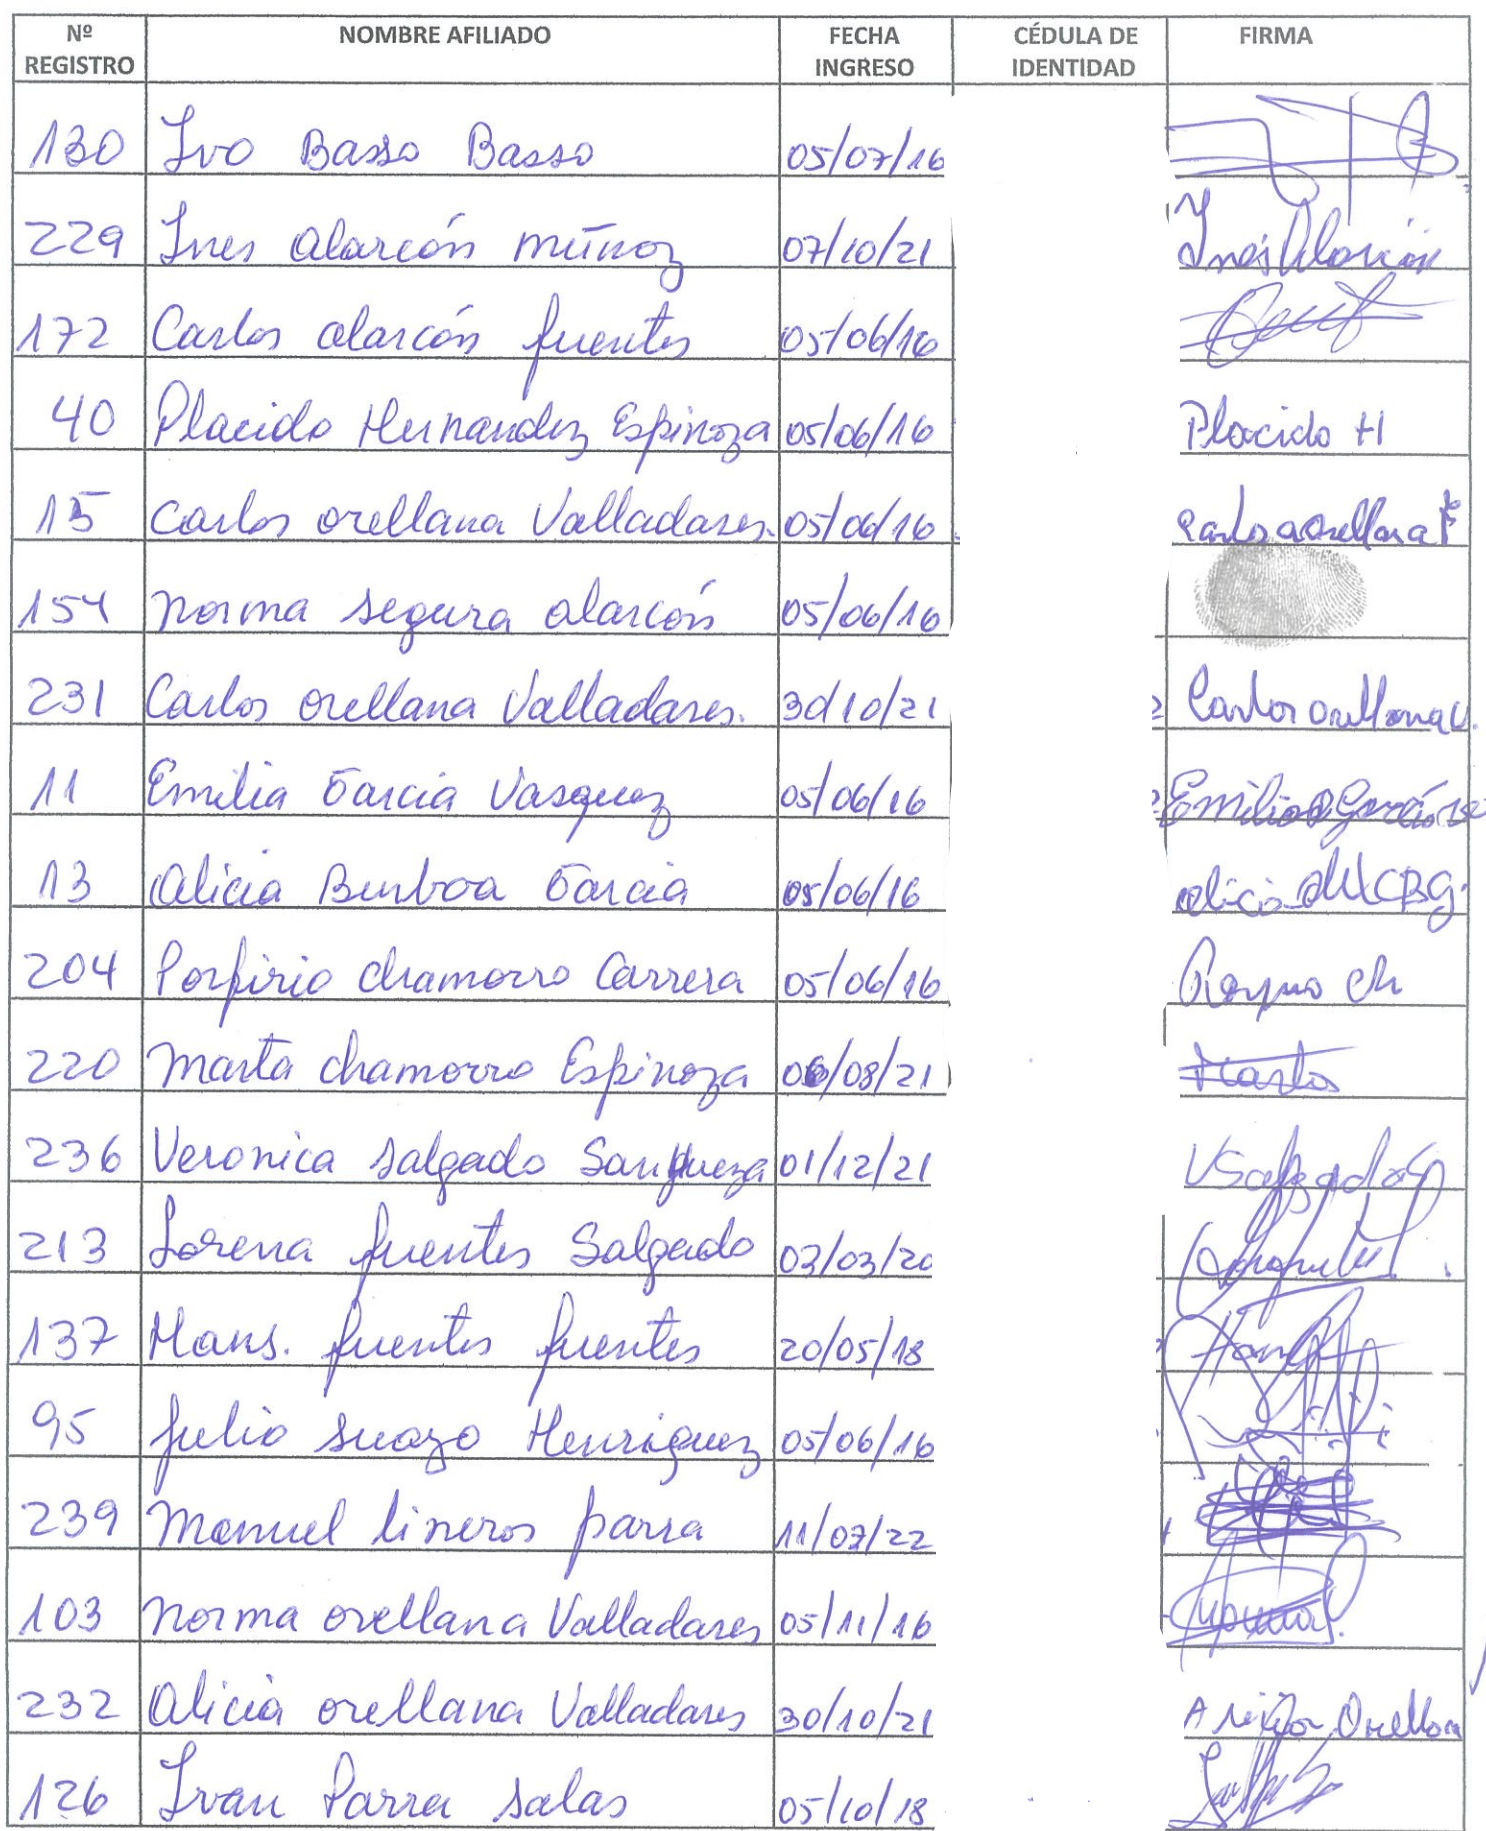 Nº REGISTRO NOMBRE AFILIADO FECHA INGRESO CÉDULA DE IDENTIDAD FIRMA
130 Ivo Basso Basso 05/07/16
229 Ines alarcón muñoz 07/10/21 Inés Alarcón
172 Carlos alarcón fuentes 05/06/16
40 Placido Hernandez Espinoza 05/06/16 Placido H
15 Carlos orellana Valladares. 05/06/16 Carlos a Orellana
154 norma segura alarcón 05/06/16
231 Carlos orellana Valladares. 30/10/21 Carlos orellana V.
11 Emilia Garcia Vasquez 05/06/16 Emilia Garcia
13 alicia Burboa Garcia 05/06/16 alicia CBG.
204 Porfirio chamorro Carrera 05/06/16 Ch
220 marta chamorro Espinoza 06/08/21 Marta
236 Veronica salgado Sanhueza 01/12/21 VSalgado
213 Lorena fuentes Salgado 03/03/20
137 Hans. fuentes fuentes 20/05/18 Hans
95 julio suazo Henriquez 05/06/16
239 manuel lineros parra 11/03/22
103 norma orellana Valladares 05/11/16
232 alicia orellana Valladares 30/10/21 Orellana
126 Ivan Parra salas 05/10/18